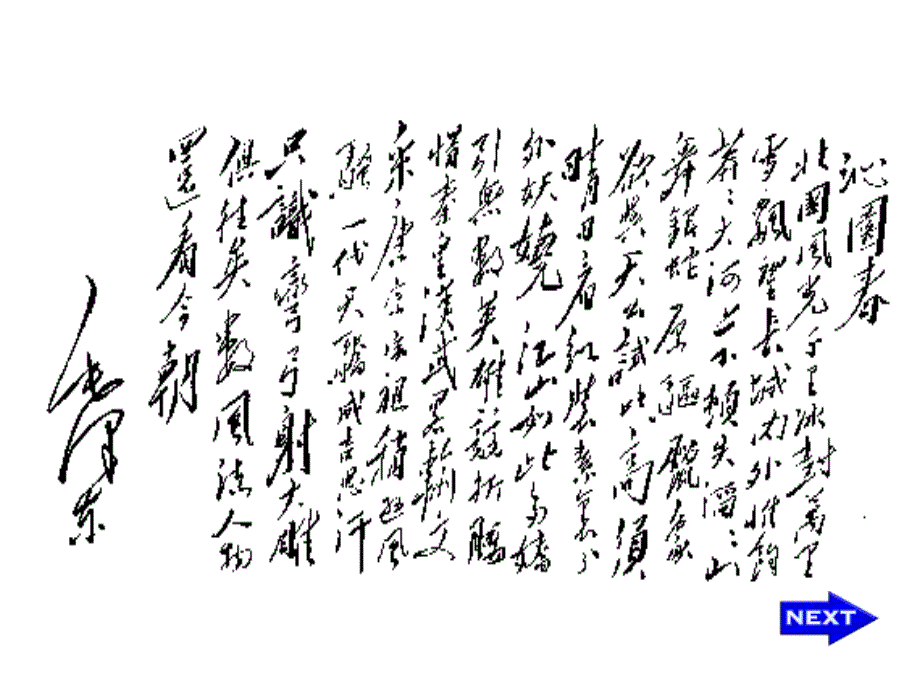 沁園春
北國風光千里冰封萬里
雪飄望長城内外惟餘
莽々大河上下頓失滔々山
舞銀蛇原驅臘象
欲與天公試比高須
晴日看紅裝素裹分
外妖嬈江山如此多嬌
引無數英雄競折腰
惜秦皇漢武略輸文
采唐宗宋祖稍遜風
騷一代天驕成吉思汗
只識彎弓射大雕
俱往矣數風流人物
還看今朝
毛澤東
NEXT